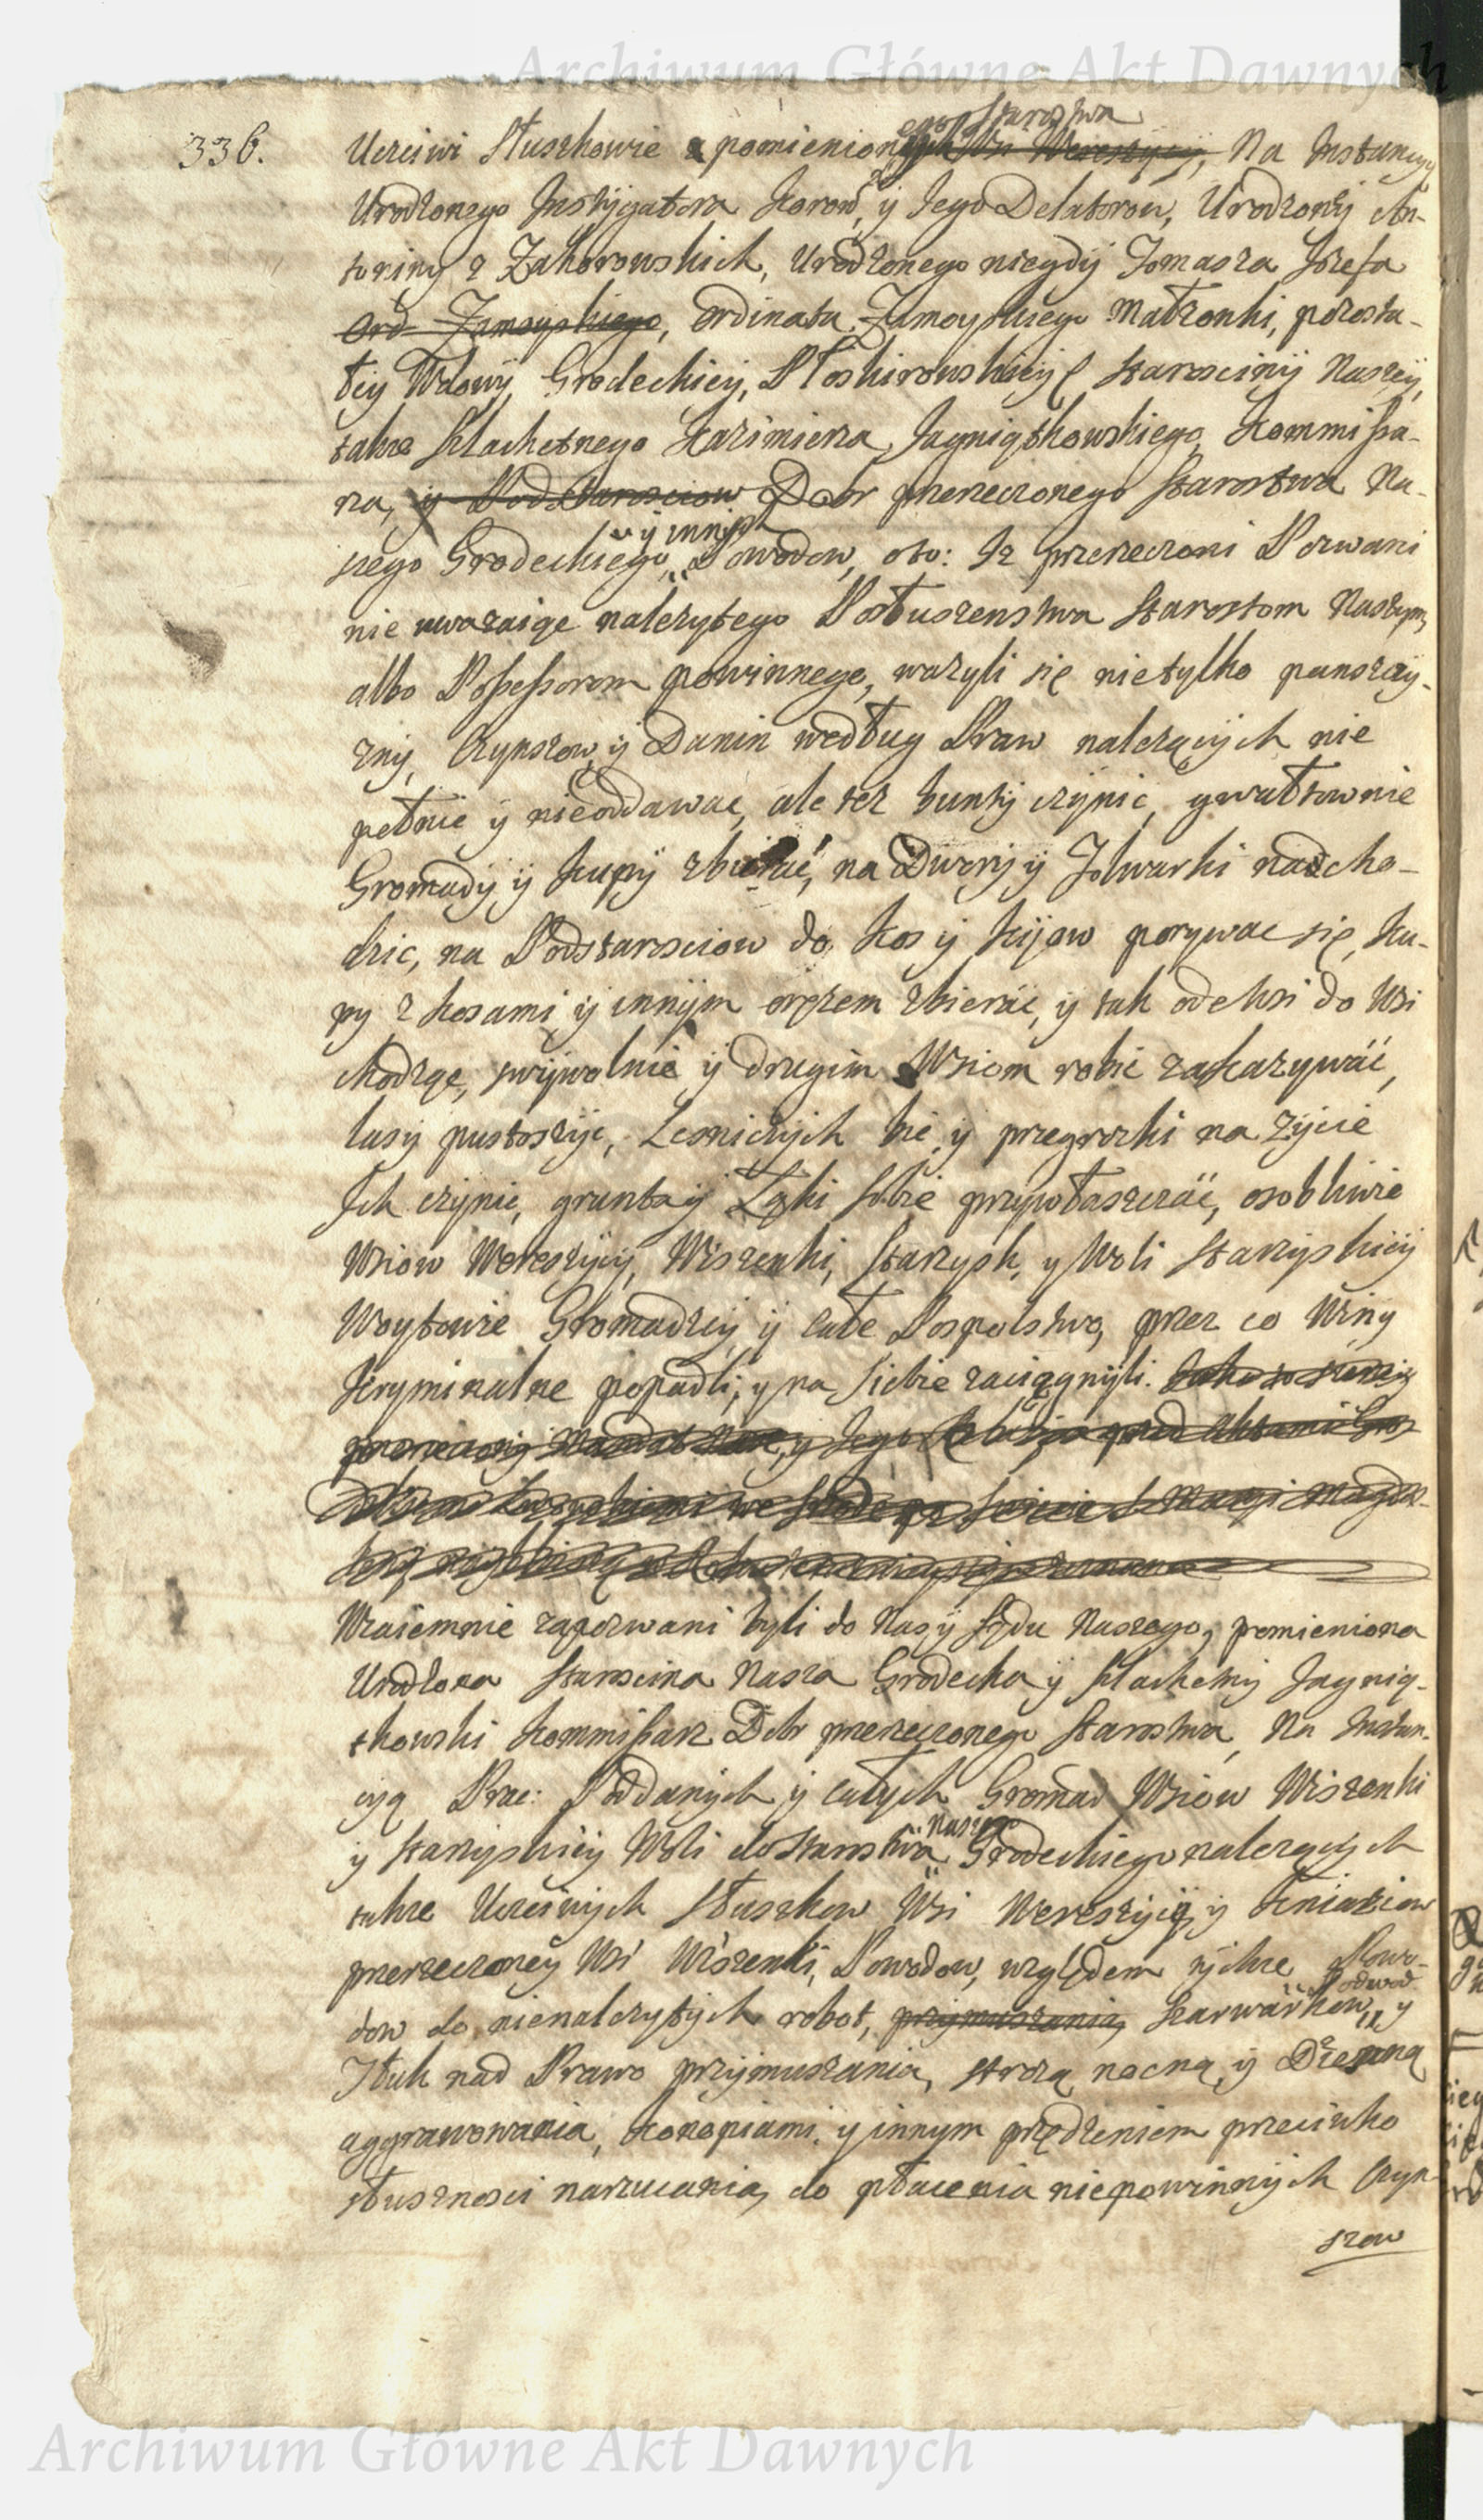 Archiwum Główne Akt Dawnych
336.
ego Starostwa
Ucziwi Słuszkowie z pomienionych Wsi Wereszycy, Na Instancyą
Urodzonego Instygatora Koron, y Jego Delatorow, Urodzony An-
toniny z Zahorowskich, Urodzonego niegdy Tomasza Jozefa
Ord Zamoyskiego, Ordinata Zamoyskiego Małzonki, pozosta-
łey Wdowy, Grodeckiey, Płoskirowskiey Starosciny Naszey,
takze Szlachetnego Kazimierza Jagniątkowskiego, Kommissa-
rza, y Podstarosciow Dobr przerzeczonego Starostwa Na-
y innych
szego Grodeckiego, Powodow, oto: Iz przerzeczoni Pozwani
nie uwazaiąc nalezytego Posłuszenstwa Starostom Naszym,
albo Possessorom powinnego, wazyli się nietylko panszczy-
zny, Czynszow, y Danin według Praw nalezących nie
pełnic y nieoddawac, ale tez bunty czynic, gwałtownie
Gromady y Kupy zbierać, na Dwory y Folwarki nadcho-
dzic, na Podstarosciow do Kos y Kijow porywac się, Ku-
py z kosami y innym orężem zbierać, y tak ode Wsi do Wsi
chodząc, swywolnie y drugim Wsiom robic zakazywać,
lasy pustoszyc, Lesniczych bic, y pregrozki na zycie
Ich czynic, grunta y Łąki sobie przywłaszczać, osobliwie
Wsiow Wereszycy, Wiszenki, Starzysk, y Woli Starzyskiey
Woytowie Gromadzcy y całe Pospolstwo, przez co Winy
Kryminalne popadli, y na siebie zaciągnyli.
przerzeczony Mandat Nasz, y Jego Relacya przed Aktami Gro-
Wzaiemnie zapozwani byli do Nas y Sądu Naszego, pomieniona
Urodzona Staroscina Nasza Grodecka y Szlachetny Jagnią-
tkowski Kommissarz Dobr przerzeczonego Starostwa, Na Instan-
cyą Prac: Poddanych y całych Gromad Wsiow Wiszenki
Naszego
y Starzyskiey Woli do Starostwa Grodeckiego nalezących
takze Uczciwych Słuszkow Wsi Wereszycy y Kniaziow
przerzeczoney Wsi Wiszenki, Powodow, względem tychze Powo-
Podwod
dow do nienalezytych robot, przymuszania, Szarwarkow, y
Tłuk nad Prawo przymuszania, strozą nocną y Dzenną
aggrawowania, konopiami y innym przędzeniem przeciwko
słusznosci narzucania, do płacenia niepowinnych Czyn-
szow
Archiwum Główne Akt Dawnych